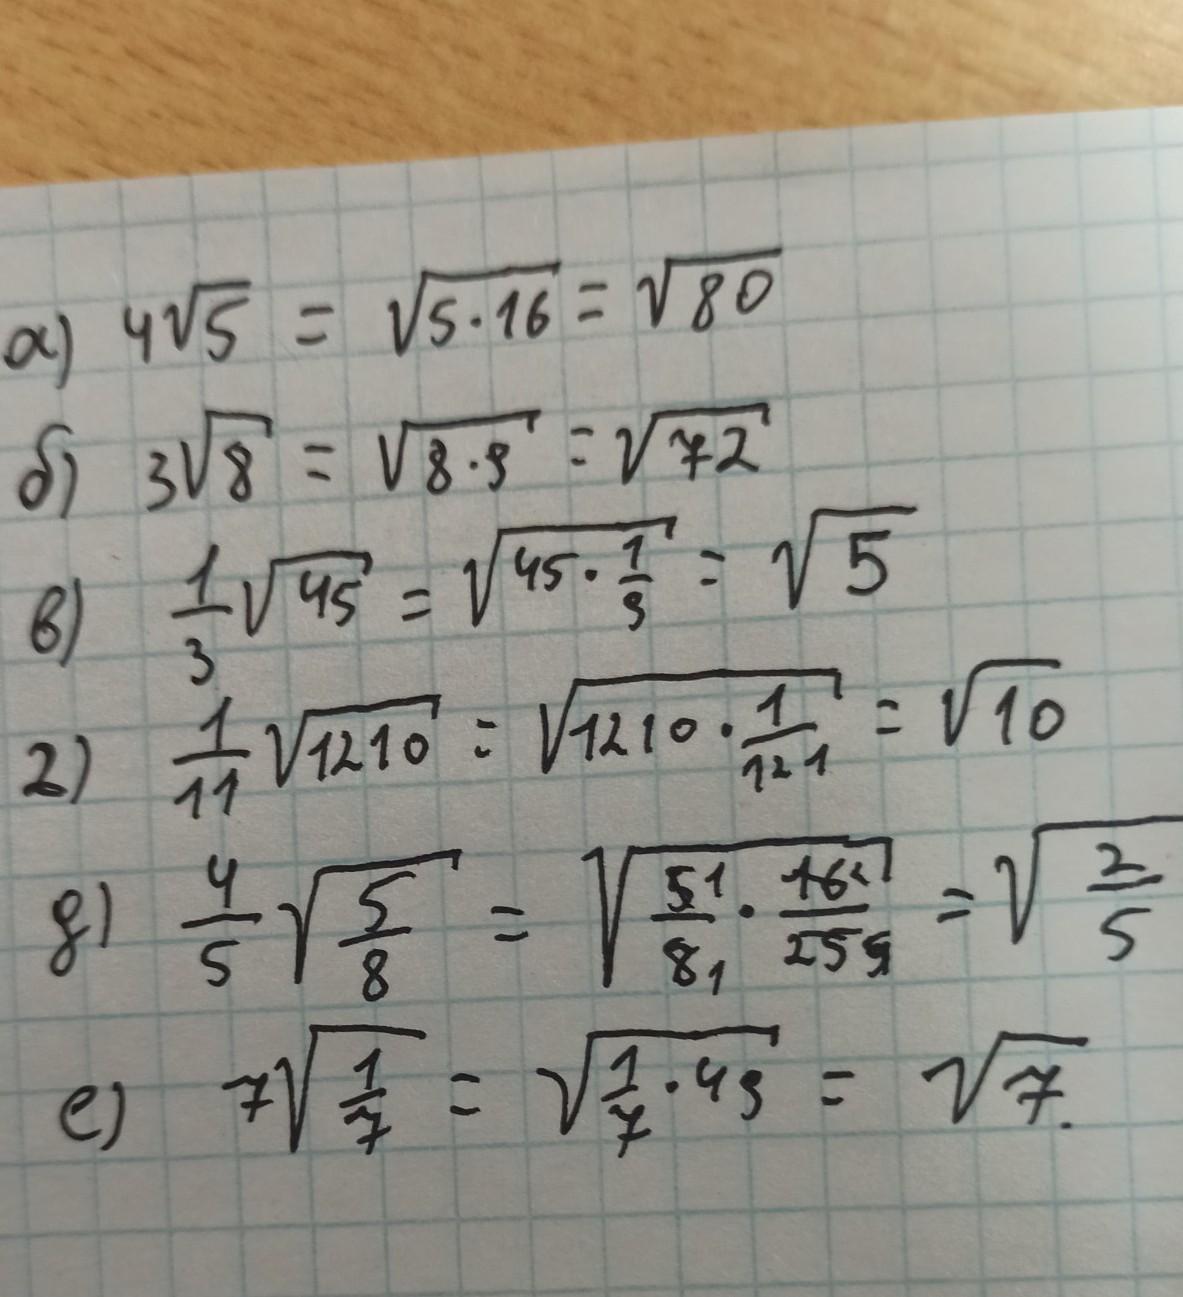 а) 4√5 = √5·16 = √80
б) 3√8 = √8·9 = √72
в) 1/3 √45 = √45·1/9 = √5
г) 1/11 √1210 = √1210·1/121 = √10
д) 4/5 √5/8 = √5/8·16/25 = √2/5
е) 7√1/7 = √1/7·49 = √7.